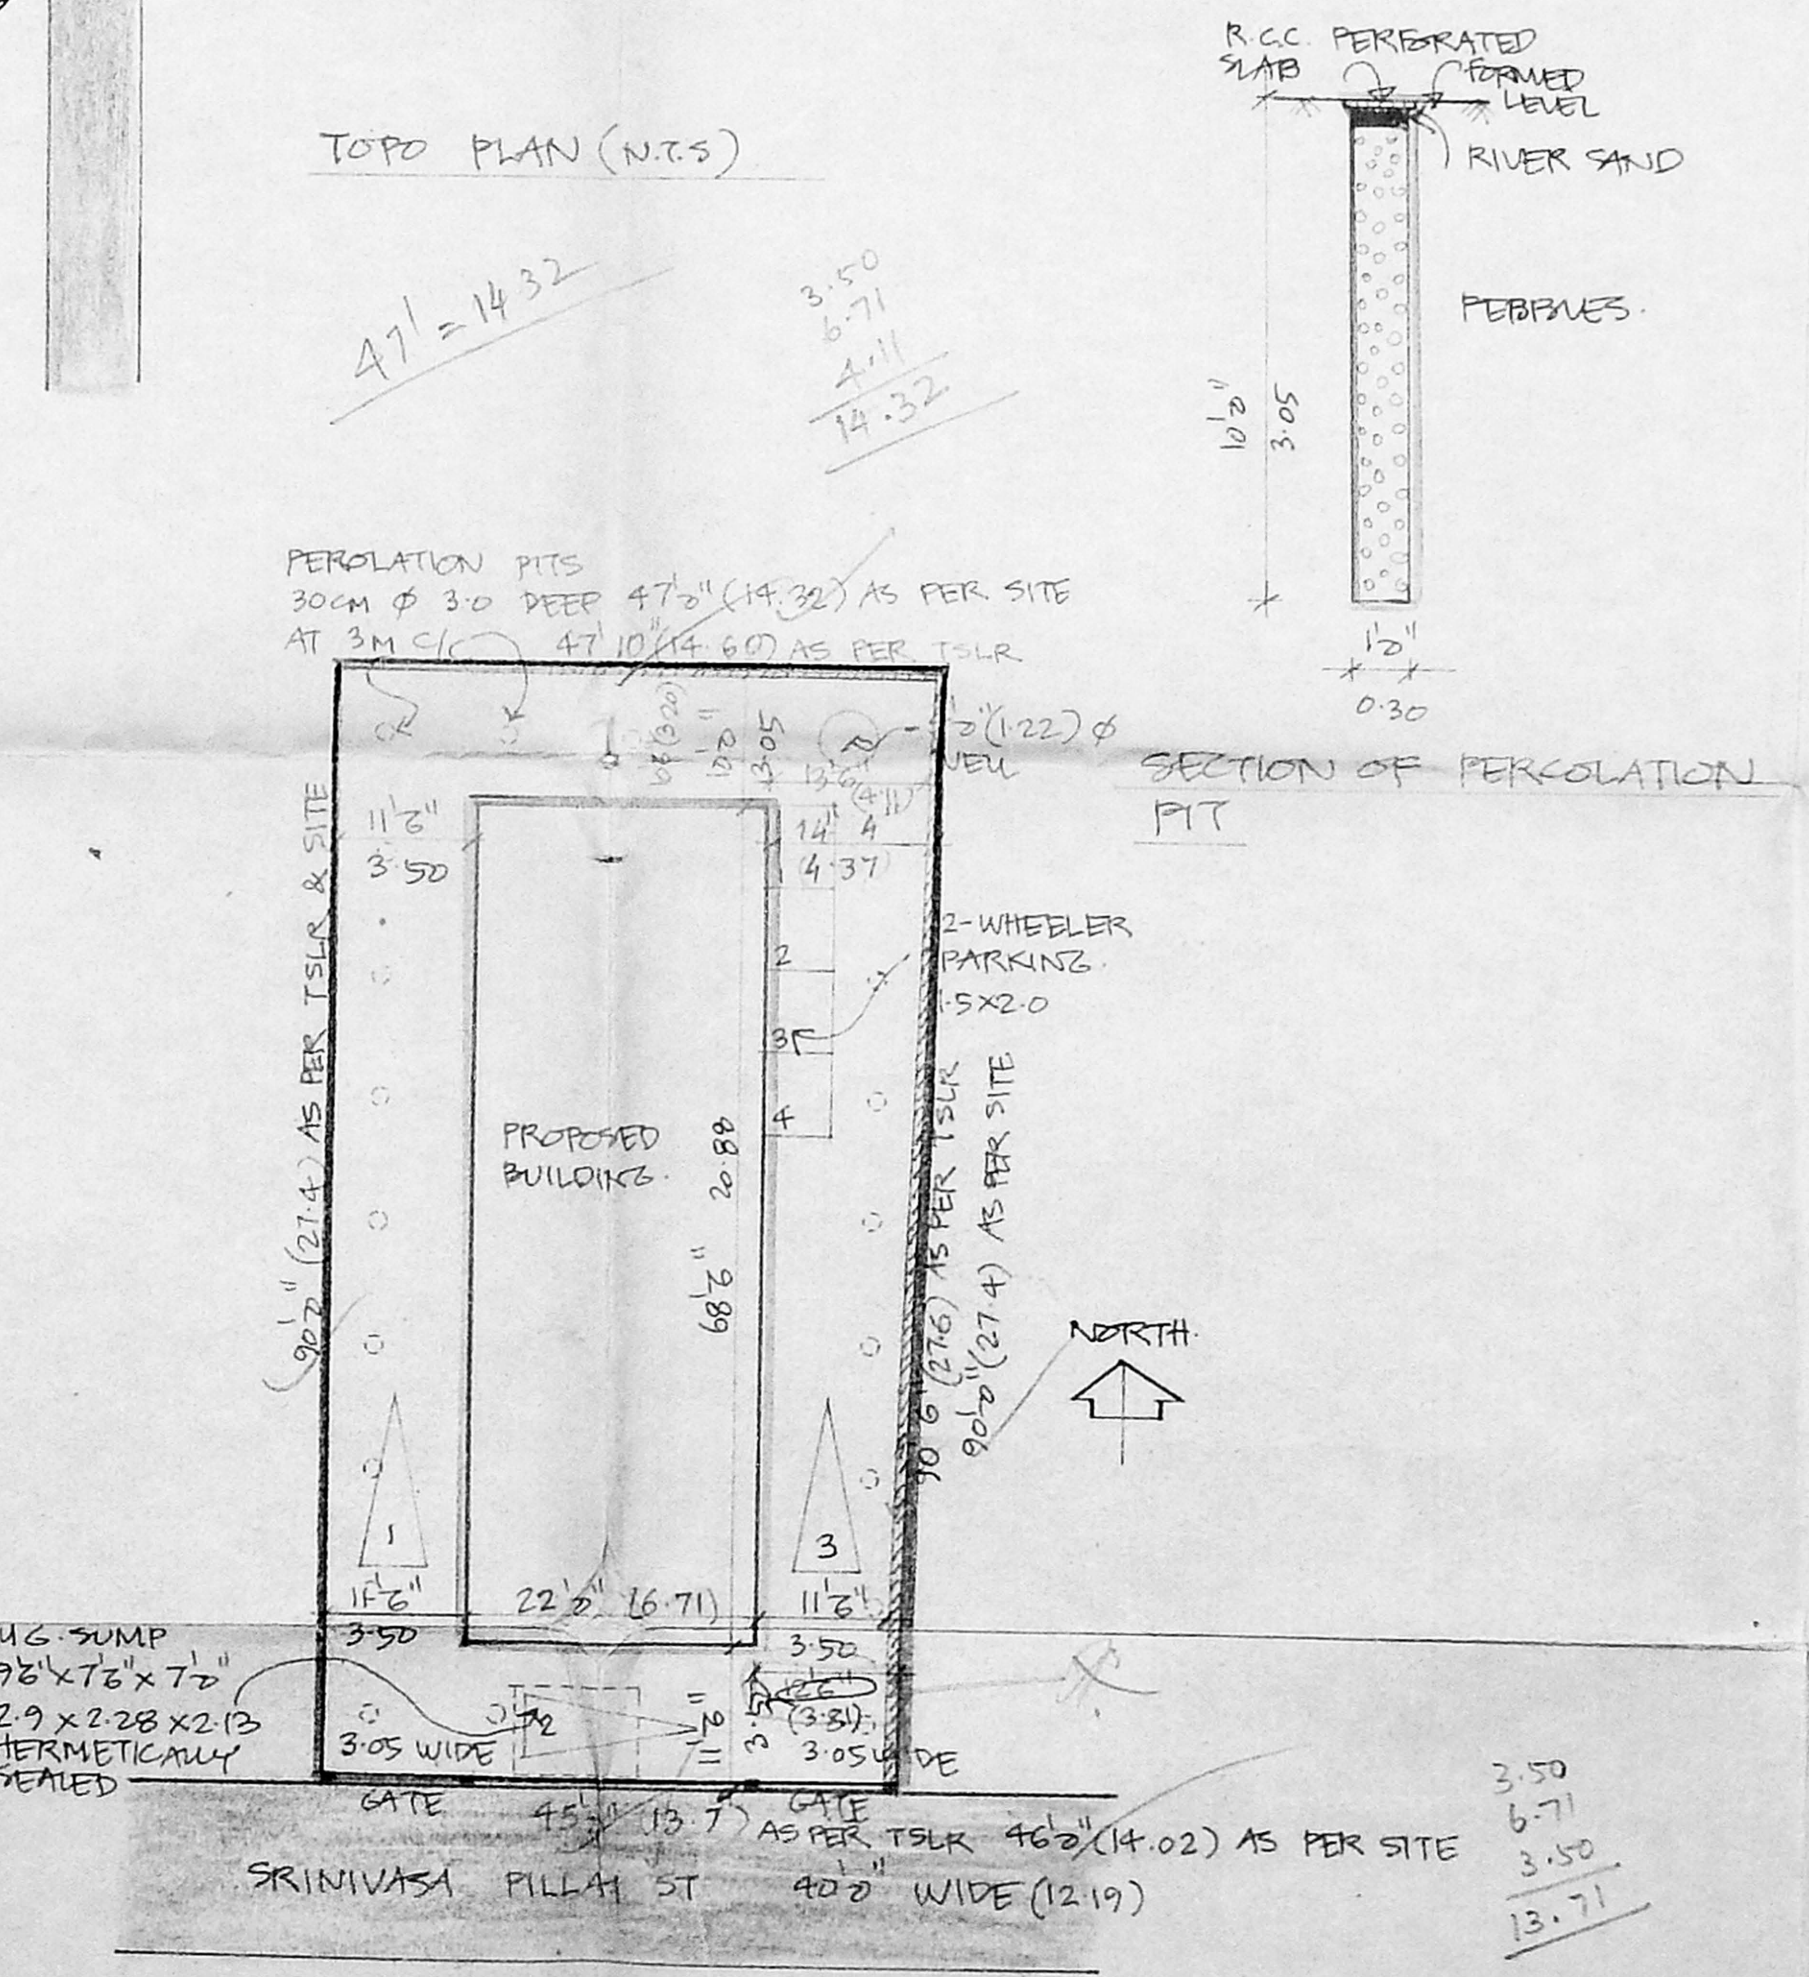 R.C.C. PERFORATED
SLAB
FORMED
LEVEL
RIVER SAND
PEBBLES.
10'0"
3.05
1'0"
0.30
SECTION OF PERCOLATION
PIT
TOPO PLAN (N.T.S)
47' = 14 32
3.50
6.71
4.11
14.32
PERCOLATION PITS
30CM Ø 3.0 DEEP 47'0" (14.32) AS PER SITE
AT 3M C/ 47' 10" (14.60) AS PER TSLR
10'0"
3.05
'0" (1.22) Ø
WELL
13'6"
(4.11)
11'6"
3.50
14" 4
(4.37)
1
2
3
4
2-WHEELER
PARKING.
1.5X2.0
90'0" (27.4) AS PER TSLR & SITE
PROPOSED
BUILDING.
20.88
68'6"
90 6" (27.6) AS PER TSLR
90'0" (27.4) AS PER SITE
NORTH.
1
3
11'6"
3.50
22'0" (6.71)
11'6"
3.50
U.G. SUMP
9'6" X 7'6" X 7'0"
2.9 X 2.28 X 2.13
HERMETICALLY
SEALED
2
11'6"
3.5
12'6"
(3.81)
3.05 WIDE
3.05 WIDE
GATE
GATE
(13.7)
AS PER TSLR 46'0" (14.02) AS PER SITE
SRINIVASA PILLAI ST 40'0" WIDE (12.19)
3.50
6.71
3.50
13.71